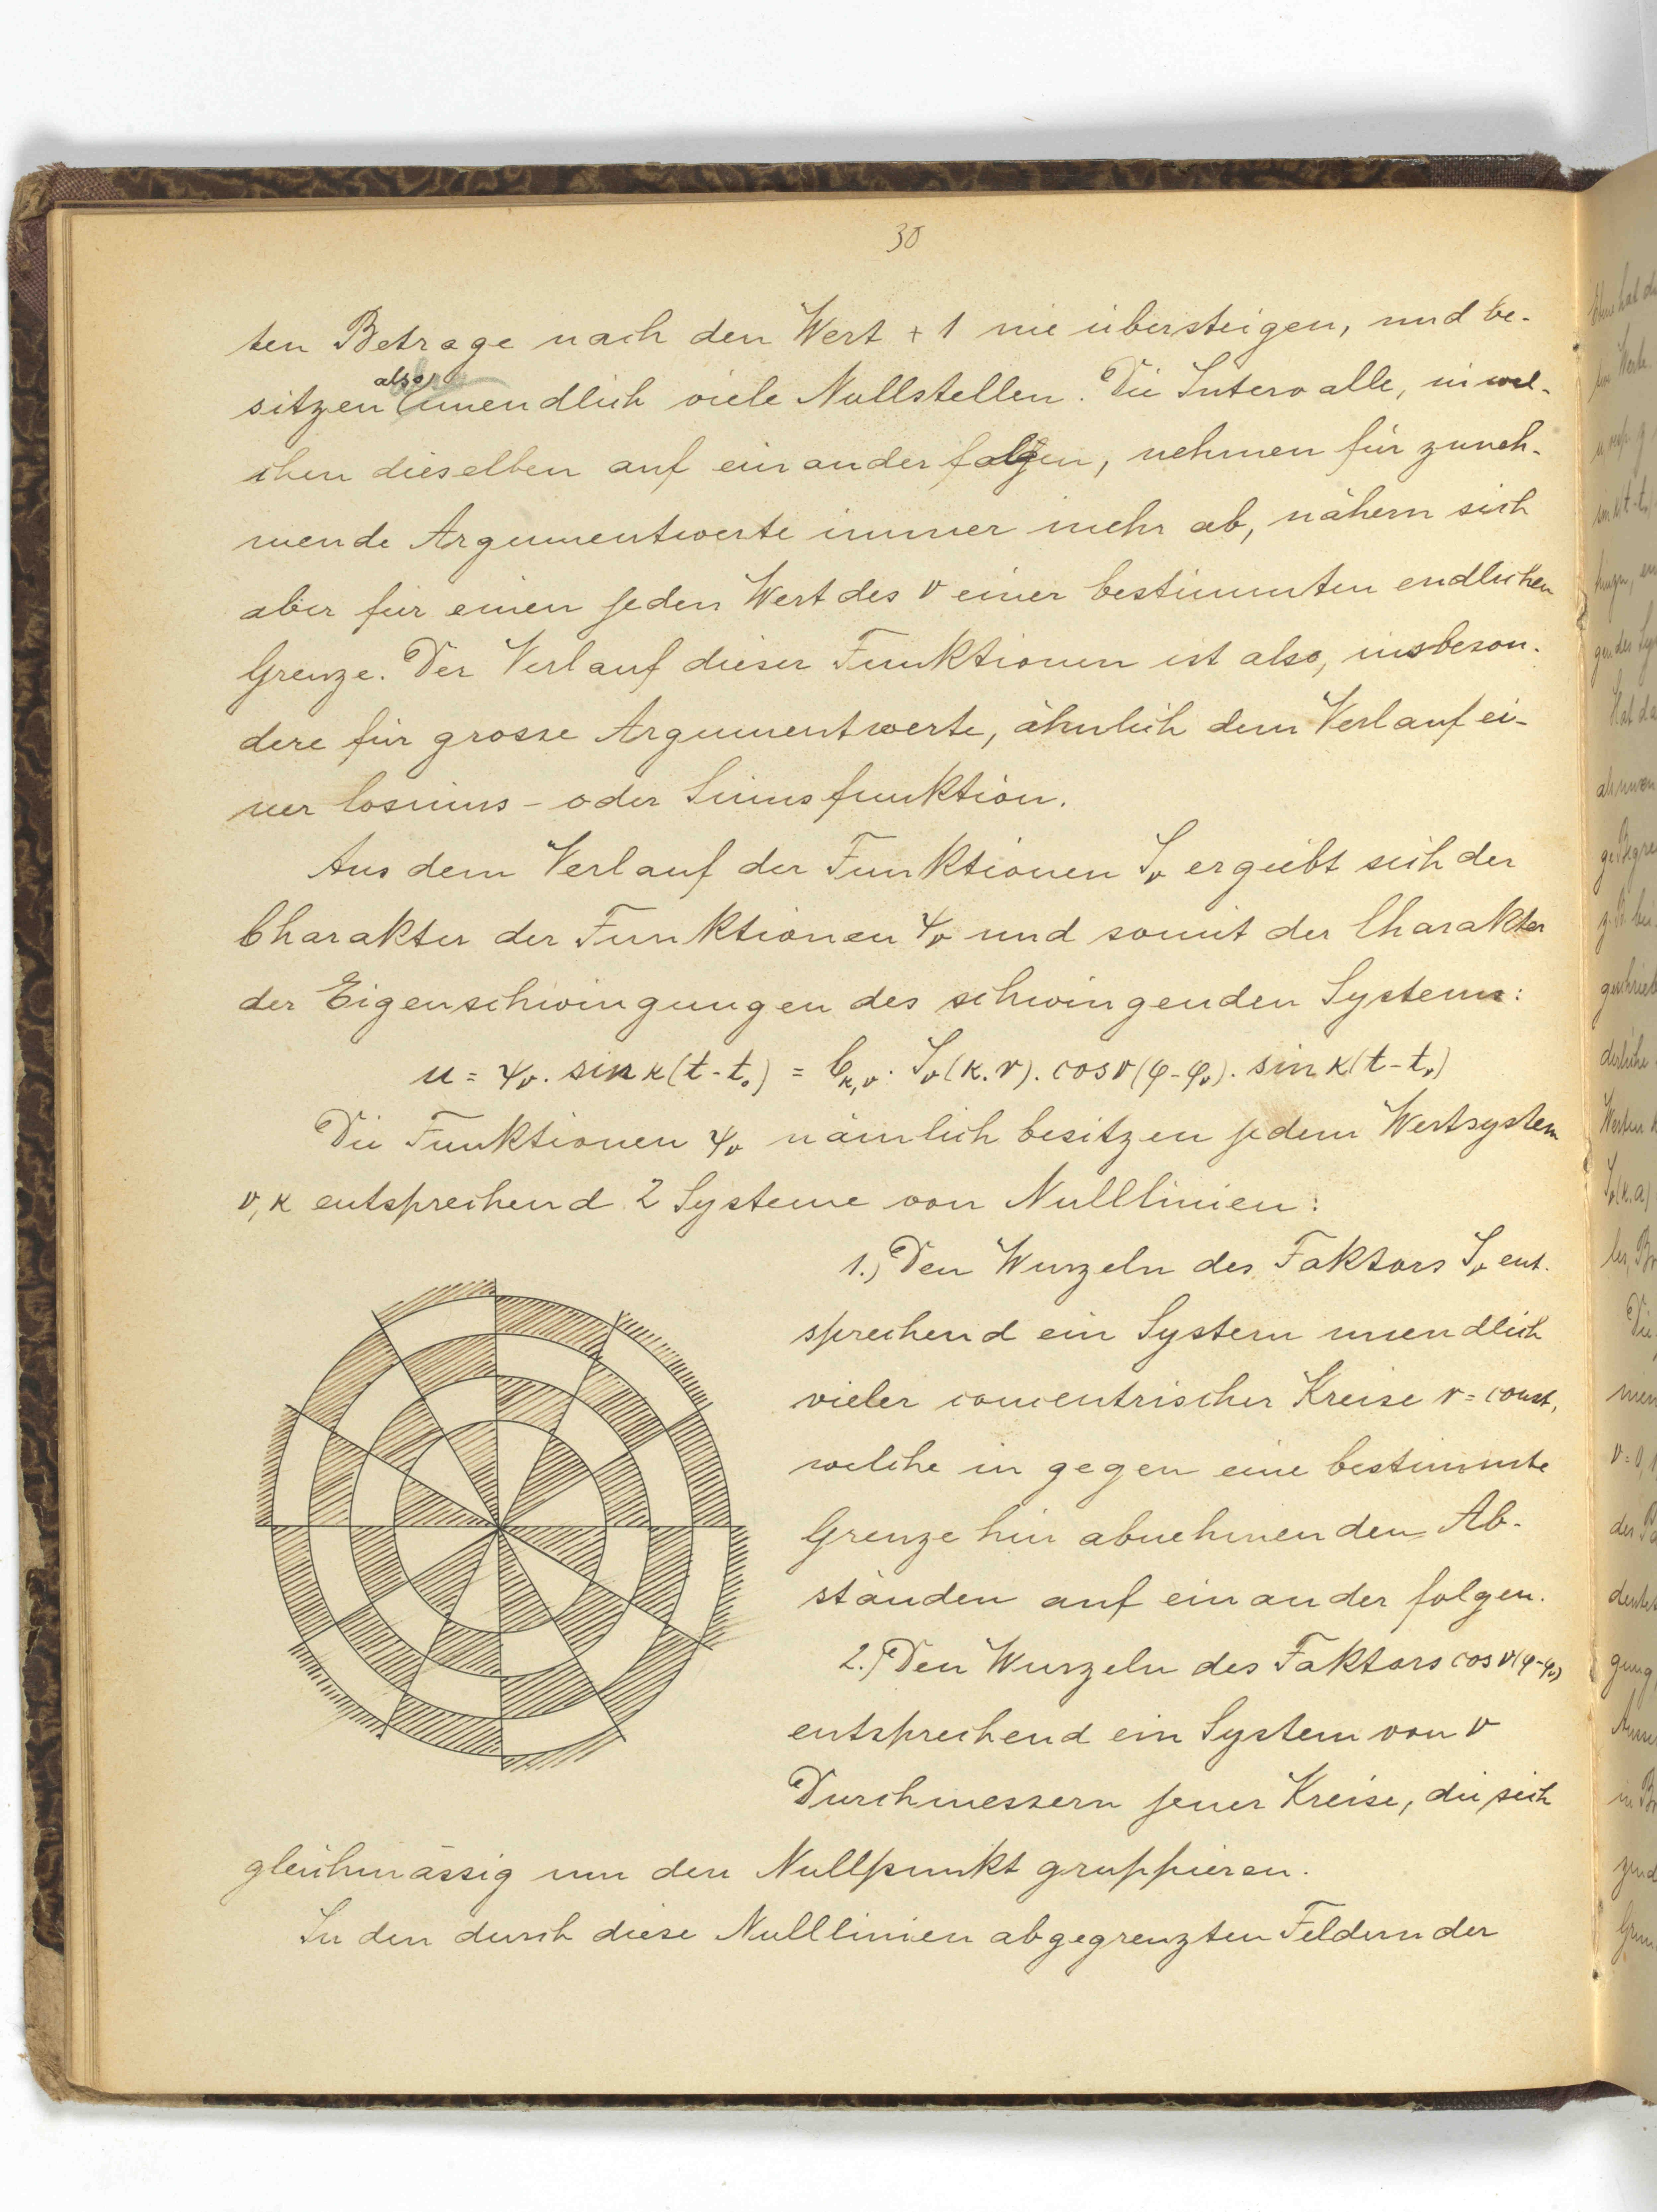 30
ten Betrage nach den Wert + 1 nie übersteigen, und be-
sitzen also unendlich viele Nullstellen. Die Intervalle, in wel-
chen dieselben auf einander folgen, nehmen für zuneh-
mende Argumentwerte immer mehr ab, nähern sich
aber für einen jeden Wert des ν einer bestimmten endlichen
Grenze. Der Verlauf dieser Funktionen ist also, insbeson-
dere für grosse Argumentwerte, ähnlich dem Verlauf ei-
ner Cosinus- oder Sinusfunktion.
Aus dem Verlauf der Funktionen J_ν ergiebt sich der
Charakter der Funktionen ψ_ν und somit der Charakter
der Eigenschwingungen des schwingenden Systems:
u = ψ_ν . sin κ(t-t_0) = C_κ,ν . J_ν(κ.r) . cos ν(φ-φ_ν) . sin κ(t-t_ν)
Die Funktionen ψ_ν nämlich besitzen jedem Wertsystem
ν, κ entsprechend 2 Systeme von Nulllinien:
1.) Den Wurzeln des Faktors J_ν ent-
sprechend ein System unendlich
vieler concentrischer Kreise r = const,
welche in gegen eine bestimmte
Grenze hin abnehmenden Ab-
ständen auf einander folgen.
2.) Den Wurzeln des Faktors cos ν(φ-φ_ν)
entsprechend ein System von ν
Durchmessern jener Kreise, die sich
gleichmässig um den Nullpunkt gruppieren.
In den durch diese Nulllinien abgegrenzten Feldern der